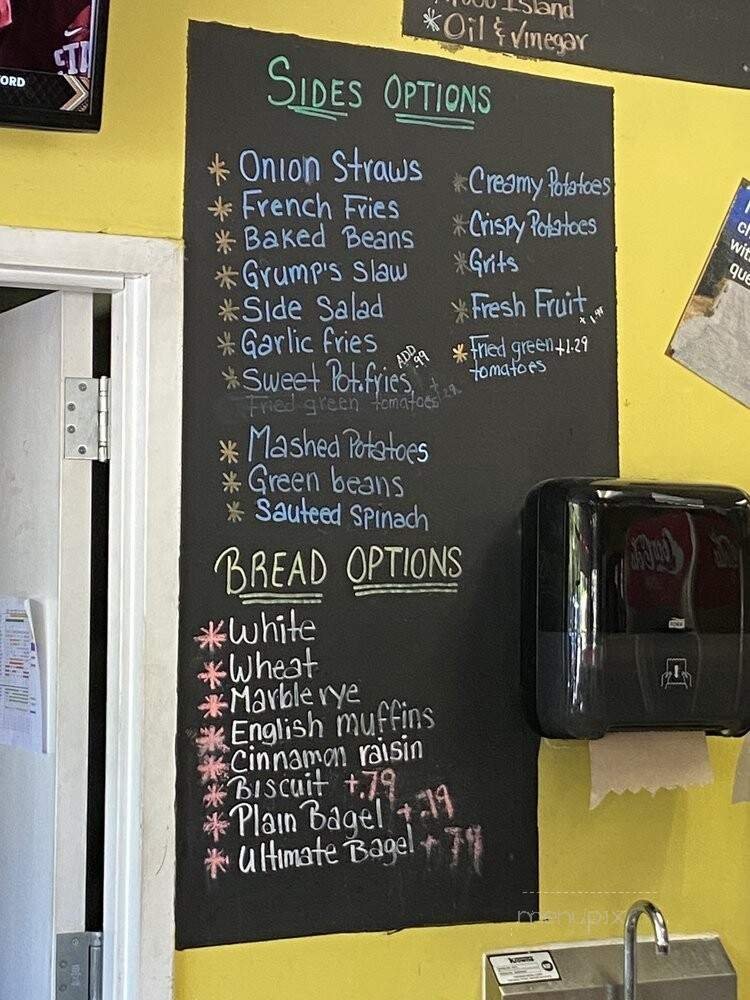 Island
* Oil & Vinegar
ORD
SIDES OPTIONS
* Onion Straws
* French Fries
* Baked Beans
* Grump's Slaw
* Side Salad
* Garlic fries
* Sweet Pot.fries ADD .99
Fried green tomatoes
* Mashed Potatoes
* Green beans
* Sauteed spinach
* Creamy Potatoes
* Crispy Potatoes
* Grits
* Fresh Fruit
* Fried green +1.29
tomatoes
BREAD OPTIONS
* White
* Wheat
* Marble rye
* English muffins
* Cinnamon raisin
* Biscuit +.79
* Plain Bagel +.79
* Ultimate Bagel +.79
Coca-Cola
menupix